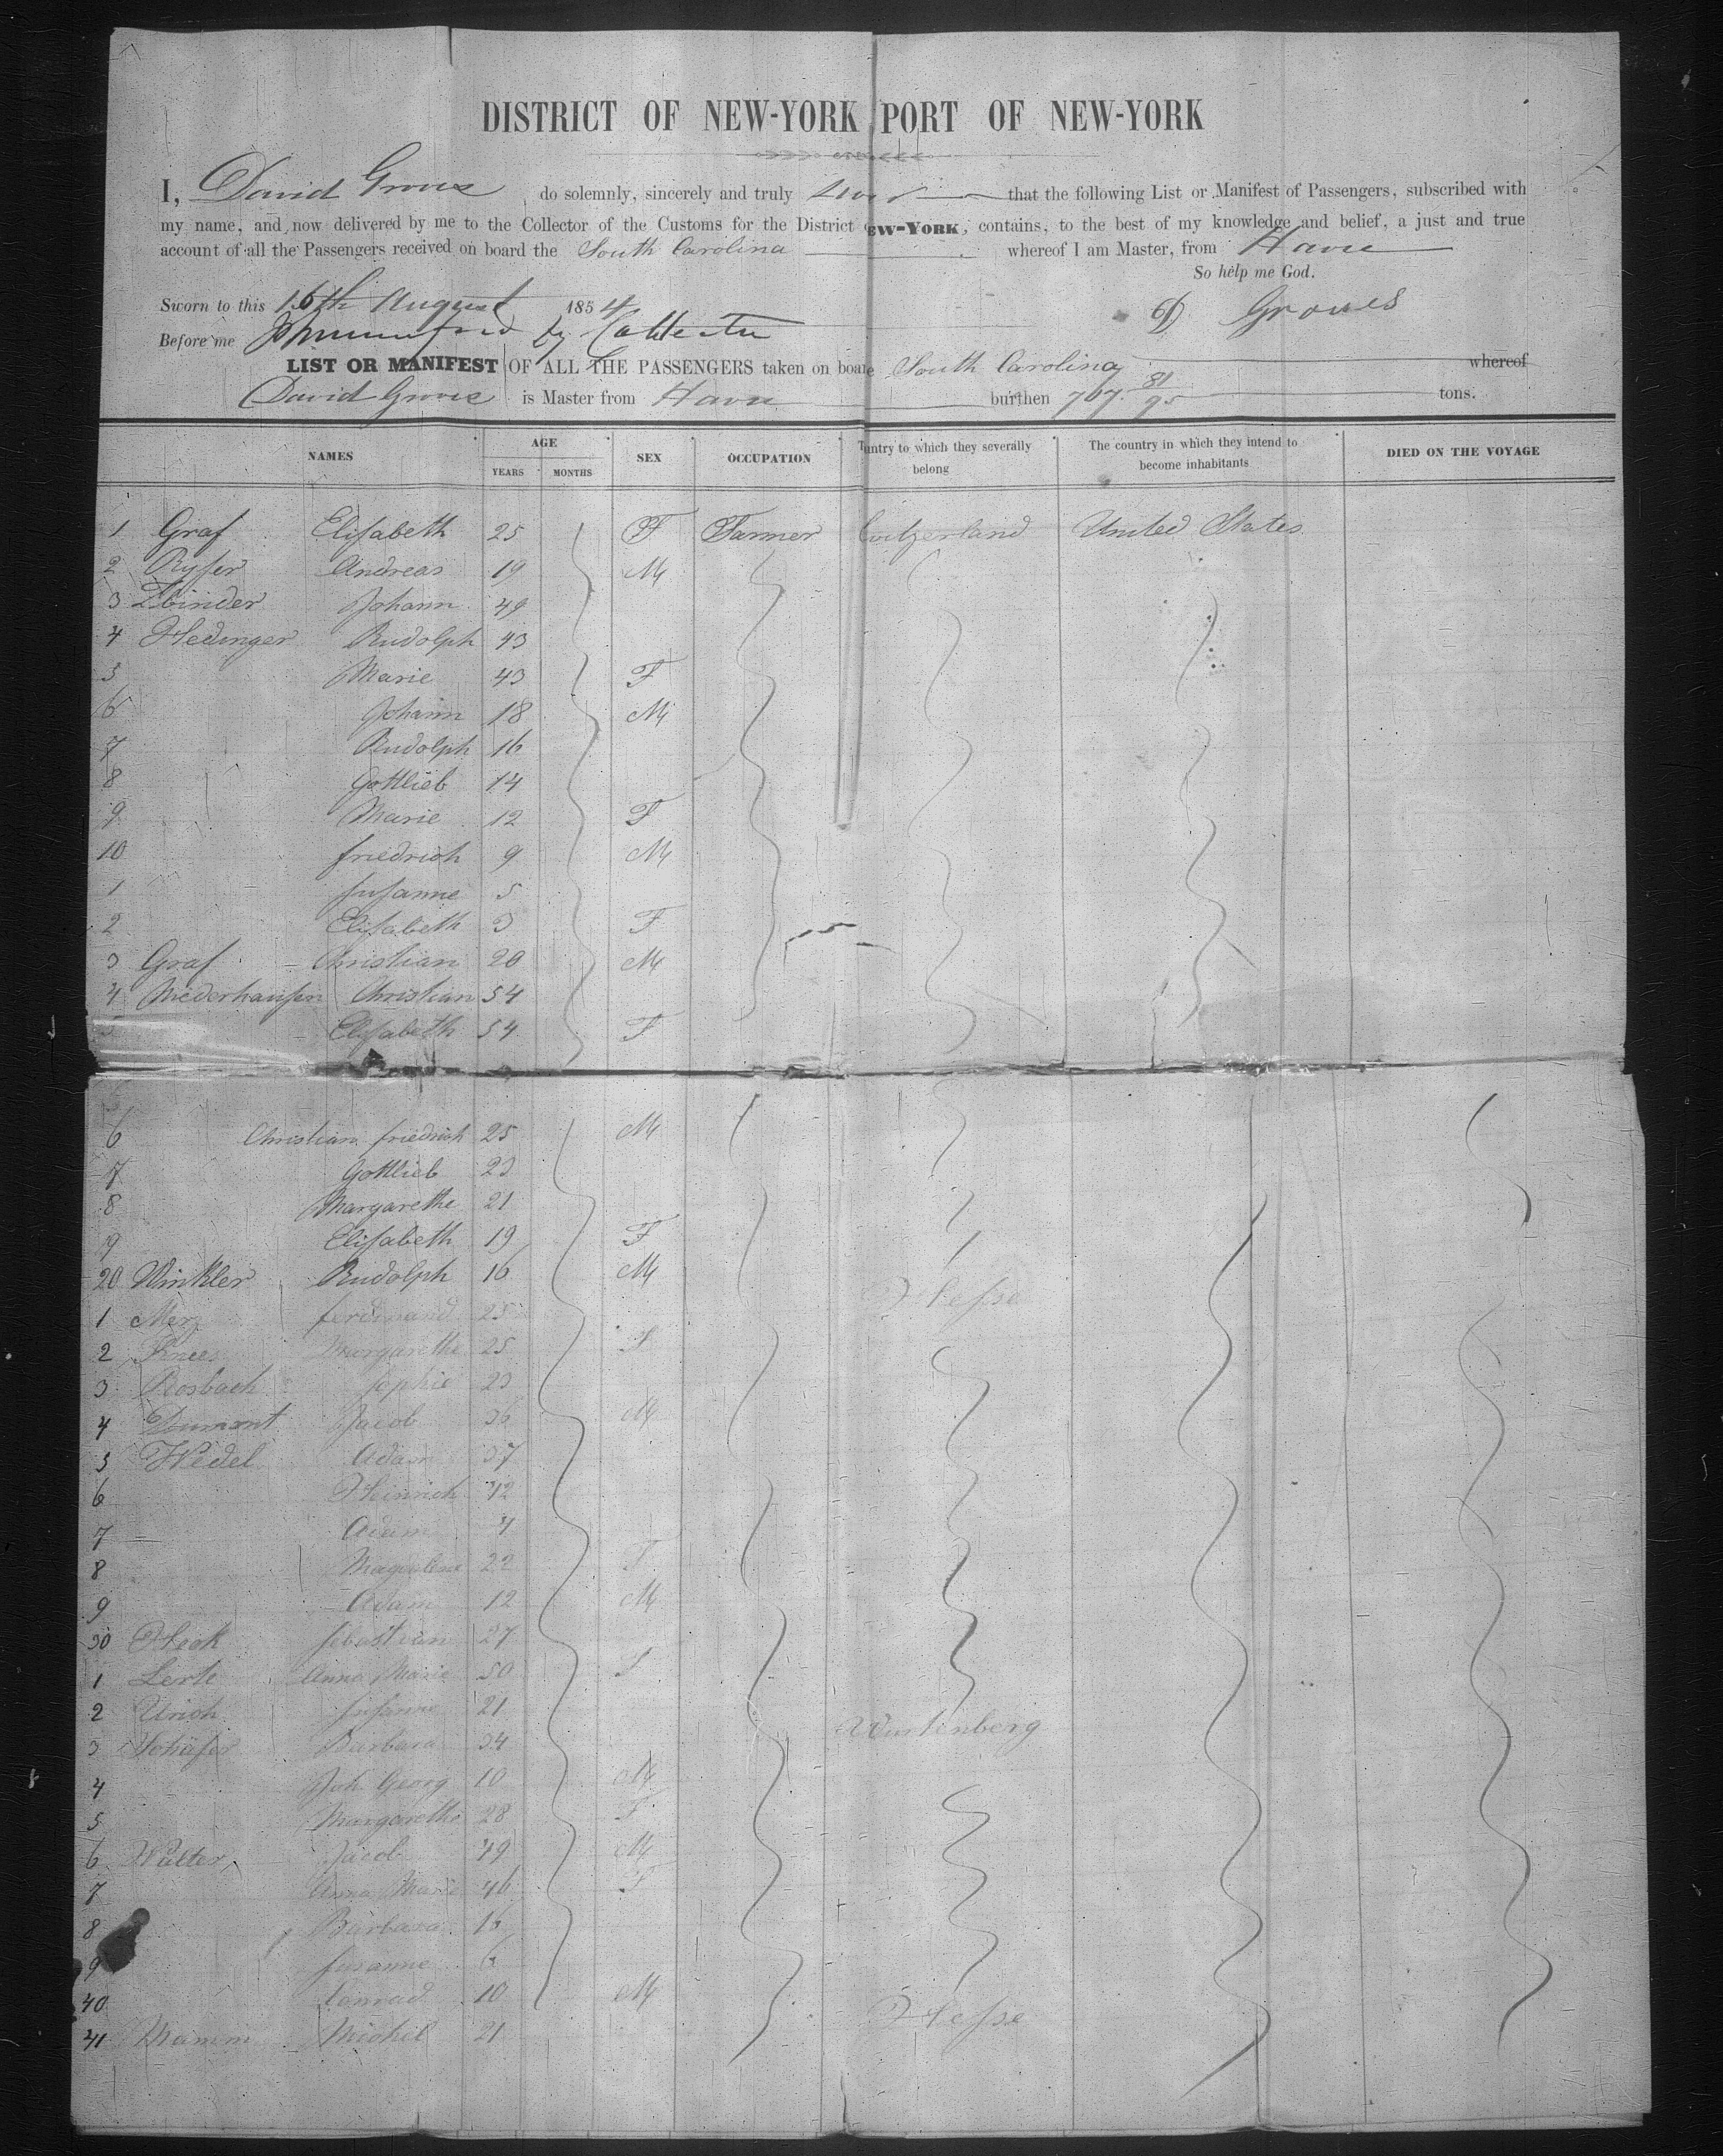 DISTRICT OF NEW-YORK PORT OF NEW-YORK
I, David Groves do solemnly, sincerely and truly swear that the following List or Manifest of Passengers, subscribed with
my name, and now delivered by me to the Collector of the Customs for the District EW-YORK, contains, to the best of my knowledge and belief, a just and true
account of all the Passengers received on board the South Carolina whereof I am Master, from Havre
So help me God.
Sworn to this 16th August 1854 D Groves
Before me
LIST OR MANIFEST OF ALL THE PASSENGERS taken on board South Carolina whereof
David Groves is Master from Havre burthen 707 81/95 tons.
NAMES AGE YEARS MONTHS SEX OCCUPATION untry to which they severally belong The country in which they intend to become inhabitants DIED ON THE VOYAGE
1 Graf Elisabeth 25 F Farmer Switzerland United States
2 Ryser Andreas 19 M
3 Zbinder Johann 49
4 Hedinger Rudolph 43
5 Marie 43 F
6 Johann 18 M
7 Rudolph 16
8 Gottlieb 14
9 Marie 12 F
10 friedrich 9 M
1 Susanne 5
2 Elisabeth 3 F
3 Graf Christian 20 M
4 Niederhausen Christian 54
5 Elisabeth 54 F
6 Christian friedrich 25 M
7 Gottlieb 23
8 Margarethe 21
9 Elisabeth 19 F
20 Winkler Rudolph 16 M
1 Merz ferdinand 25 Hesse
2 Knees Margarethe 25 F
3 Rosbach Sophie 23
4 Dumont Jacob 36 M
5 Wedel Adam 37
6 Heinrich 42
7 Adam 4
8 Magdalene 22 F
9 Adam 12 M
30 Heck Sebastian 27
1 Anna Marie 50 F
2 Urich Susanne 21
3 Schäfer Barbara 34 Wurtenberg
4 Joh. Georg 10 M
5 Margarethe 28 F
6 Walter Jacob 49 M
7 Anna Marie 46 F
8 Barbara 16
9 Susanne 6
40 Conrad 10 M
41 Mamm Michel 21 Hesse